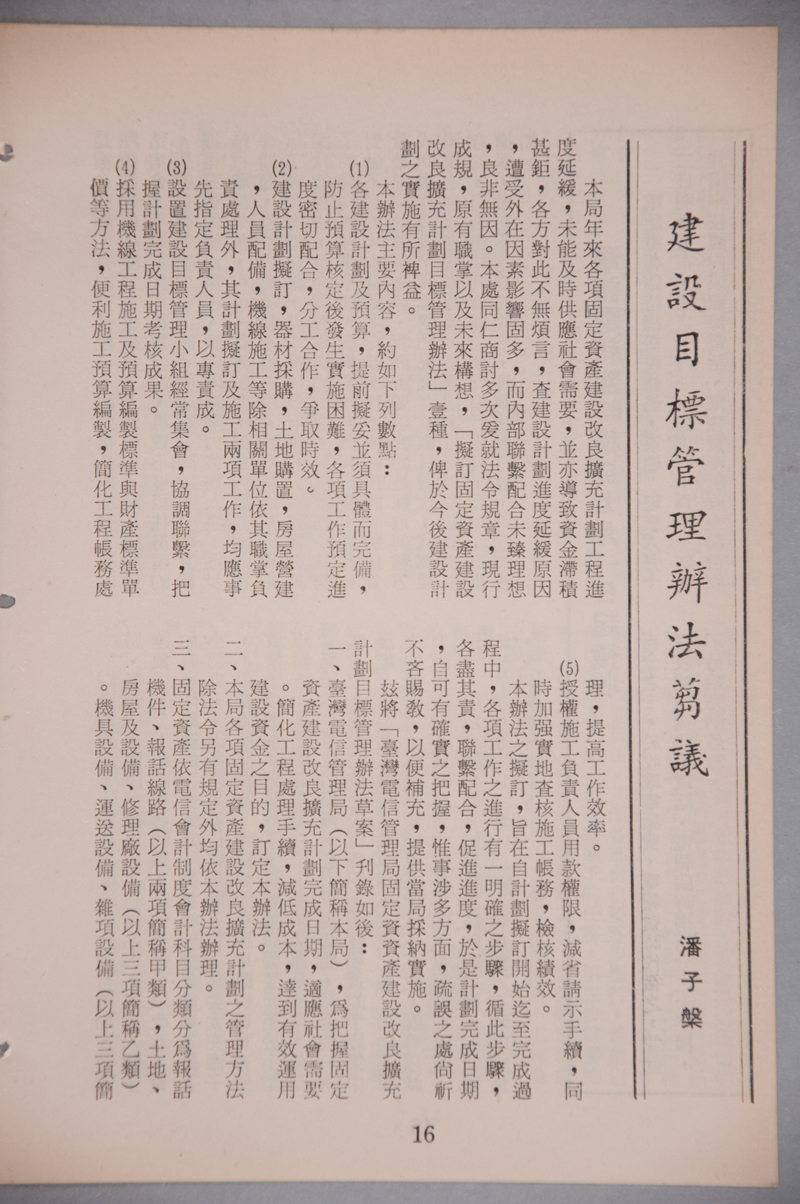 建設目標管理辦法芻議
潘子槃
本局年來各項固定資產建設改良擴充計劃工程進
度延緩，未能及時供應社會需要，並亦導致資金滯積
甚鉅，各方對此不無煩言，查建設計劃進度延緩原因
，遭受外在因素影響固多，而內部聯繫配合未臻理想
，良非無因。本處同仁商討多次爰就法令規章，現行
成規，原有職掌以及未來構想，「擬訂固定資產建設
改良擴充計劃目標管理辦法」壹種，俾於今後建設計
劃之實施有所裨益。
本辦法主要內容，約如下列數點：
⑴各建設計劃及預算，提前擬妥並須具體而完備，
防止預算核定後發生實施困難，各項工作預定進
度密切配合，分工合作，爭取時效。
⑵建設計劃擬訂，器材採購，土地購置，房屋營建
，人員配備，機線施工等除相關單位依其職掌負
責處理外，其計劃擬訂及施工兩項工作，均應事
先指定負責人員，以專責成。
⑶設置建設目標管理小組經常集會，協調聯繫，把
握計劃完成日期考核成果。
⑷採用機線工程施工及預算編製標準與財產標準單
價等方法，便利施工預算編製，簡化工程帳務處
理，提高工作效率。
⑸授權施工負責人員用款權限，減省請示手續，同
時加强實地查核施工帳務，檢核績效。
本辦法之擬訂，旨在自計劃擬訂開始迄至完成過
程中，各項工作之進行有一明確之步驟，循此步驟，
各盡其責，聯繫配合，促進進度，於是計劃完成日期
，自可有確實之把握，惟事涉多方面，疏誤之處尙祈
不吝賜敎，以便補充，提供當局採納實施。
玆將「臺灣電信管理局固定資資產建設改良擴充
計劃目標管理辦法草案」刋錄如後：
一、臺灣電信管理局（以下簡稱本局），爲把握固定
資產建設改良擴充計劃完成日期，適應社會需要
。簡化工程處理手續，減低成本，達到有效運用
建設資金之目的，訂定本辦法。
二、本局各項固定資產建設改良擴充計劃之管理方法
除法令另有規定外均依本辦法辦理。
三、固定資產依電信會計制度會計科目分類分爲報話
機件、報話線路（以上兩項簡稱甲類），土地、
房屋及設備、修理廠設備（以上三項簡稱乙類）
。機具設備、運送設備、雜項設備（以上三項簡
16